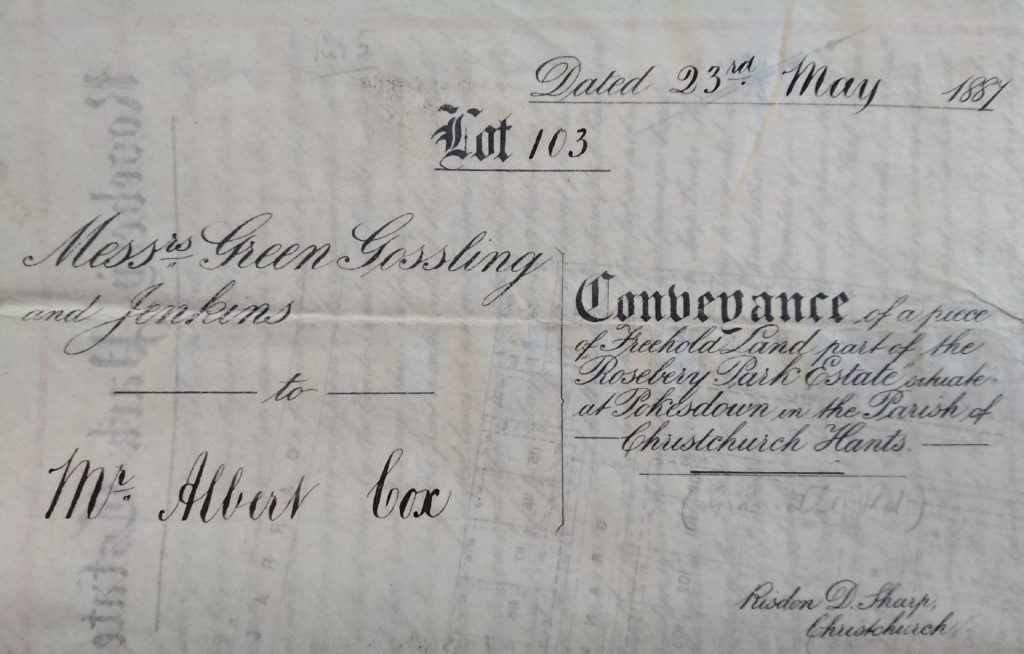 Dated 23rd May 1887
Lot 103
Messrs Green Gossling
and Jenkins
to
Mr Albert Cox
Conveyance of a piece
of Freehold Land part of the
"Rosebery Park Estate" situate
at Pokesdown in the Parish of
Christchurch Hants.
Risdon D. Sharp,
Christchurch